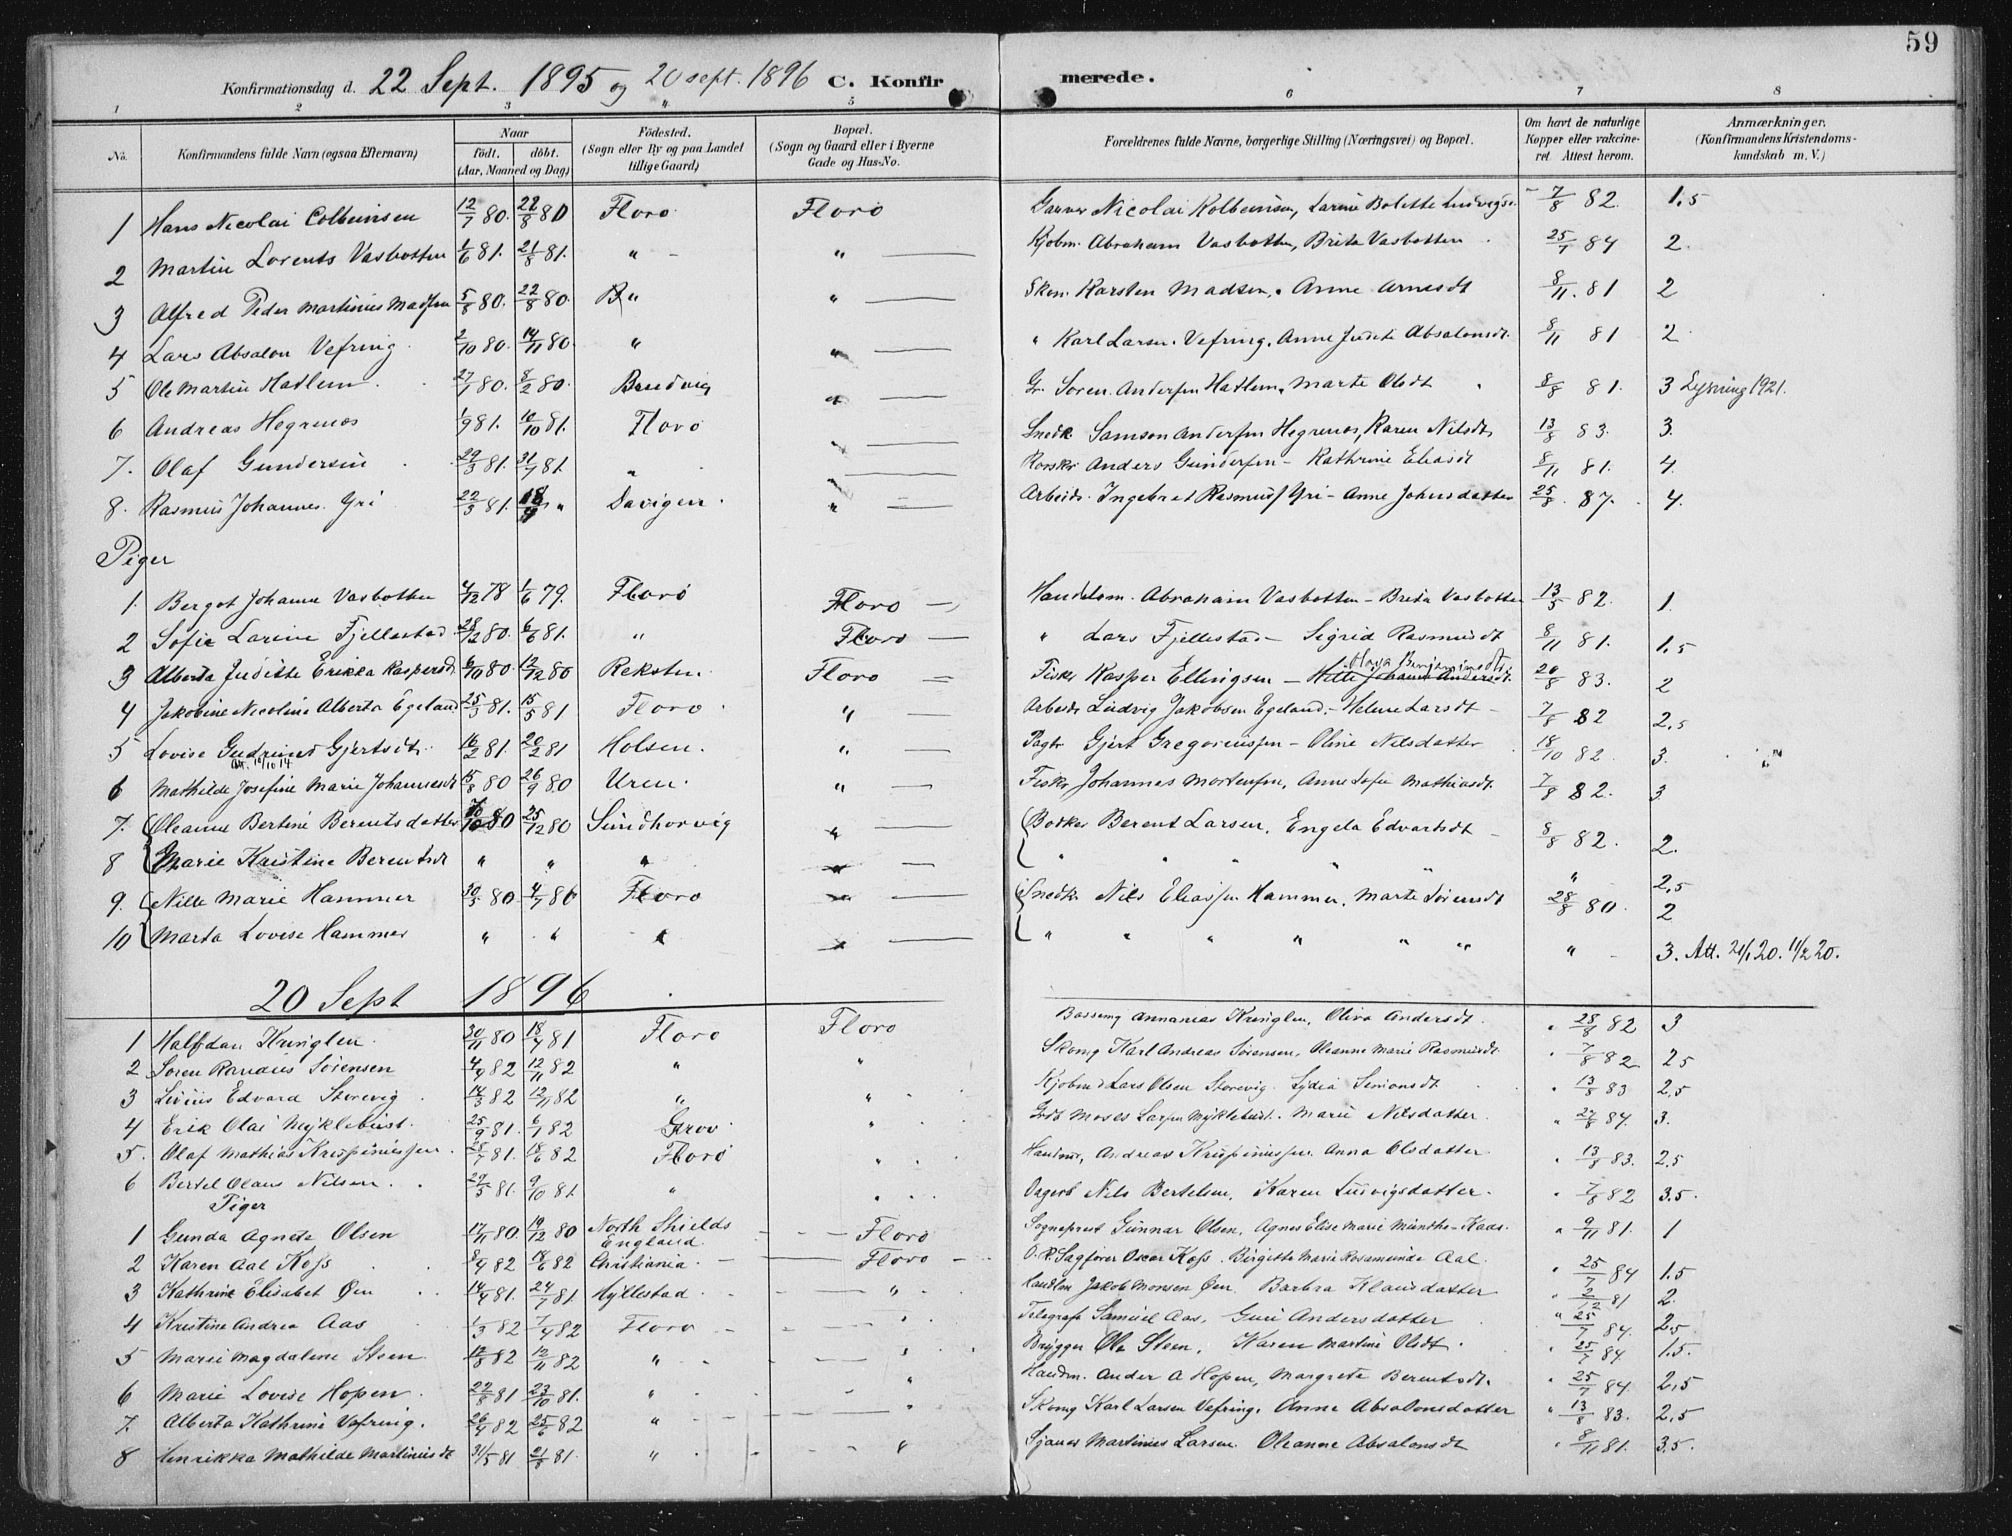 59
Konfirmationsdag d. 22 Sept. 1895 og 20 sept. 1896 C. Konfirmerede.
1 2 3 4 5 6 7 8
No. Konfirmandens fulde Navn (ogsaa Efternavn) Naar födt. döbt. (Aar, Maaned og Dag) Födested. (Sogn eller By og paa Landet tillige Gaard) Bopæl. (Sogn og Gaard eller i Byerne Gade og Hus-No. Forældrenes fulde Navne, borgerlige Stilling (Næringsvei) og Bopæl. Om havt de naturlige Kopper eller vakcineret. Attest herom. Anmærkninger. (Konfirmandens Kristendomskundskab m. V.)
1 Hans Nicolai Colbeinsen 12/7 80. 22/8 80 Florø Florø Garver Nicolai Kolbeinsen, Larine Bolette Ludvigs. 7/8 82. 1.5
2 Martin Lorents Vasbotten 1/6 81. 21/8 81. " " Kjøbm. Abraham Vasbotten, Brita Vasbotten 25/7 84 2.
3 Alfred Peder Martinus Madsen 5/8 80. 22/8 80. " " Skom. Karsten Madsen, Anne Arnesdt 8/11 81 2
4 Lars Absalon Vefring 2/10 80. 14/11 80. " " " Karl Larsen Vefring, Anne Judite Absalonsdt. 8/11 81 2
5 Ole Martin Hatlem 27/1 80. 8/2 80. Bredvig " Gr. Søren Andersen Hatlem, Marte Olsdt 8/8 81. 3 Lysning 1921.
6 Andreas Hegrenæs 1/9 81. 10/10 81. Florø " Snedk. Samson Andersen Hegrenæs, Karen Nilsdt. 13/8 83. 3.
7. Olaf Gundersen 29/3 81. 31/7 81. " " Anders Gundersen - Kathrine Eliasdt 8/11 81. 4.
8. Rasmus Johannes Yri 22/3 81. 18/4 " Davigen " Arbeids. Ingebret Rasmuss Yri - Anne Johnsdatter 25/8 87. 4.
Piger
1. Bergot Johanne Vasbotten 4/12 78 1/6 79. Florø Florø Handelsm. Abraham Vasbotten - Brita Vasbotten 13/5 82. 1.
2 Sofie Larine Fjellestad 28/12 80. 6/6 81. " Florø " Lars Fjellestad - Sigrid Rasmusdt 8/11 81. 1.5
3 Alberta Juditte Erikka Kaspersdt 6/10 80. 12/12 80 Reksten Florø Fisker Kasper Ellingsen - Johanne Andersdt 20/8 83. 2
4 Jakobine Nicoline Alberta Egeland 25/3 81. 15/5 81 Florø " Arbeids Ludvig Jakobsen Egeland - Helene Larsdt 7/8 82 2,5
5 Lovise Gudrine Gjertsdt. 16/2 81. 20/2 81 Holsen. " Gjert Gregoriussen - Oline Nilsdatter 18/10 82. 3.
Att. 16/10 14
6 Mathilde Josefine Marie Johannesdt 15/8 80 26/9 80 Uren. " Fisker Johannes Mortensen, Anne Sofie Mathiasdt. 7/8 82. 3
7. Oleanne Bertine Berentsdatter 80 25/12 80 Sundhorvig " Bødker Berent Larsen, Engela Edvartsdt 8/8 82. 2.
8 Marie Kristine Berentsdt " " " " " " " " " 2,5
9. Nille Marie Hammer 30/5 80. 4/7 80 Florø " Snedk Nils Eliassen Hammer, Marte Sørensdt 28/8 80. 2
10 Marta Lovise Hammer " " " " " " " " " " " 3. Att. 21/1 20. 11/2 20.
20 Sept 1896
1 Halfdan Kringlen. 30/11 80 18/4 81 Florø Florø Ananias Kringlen, Oliva Andersdt. " 28/8 82 3
2 Søren Randius Sørensen 4/9 82 12/11 82 " " Skomg Karl Andreas Sørensen, Oleanne Marie Rasmusdt. " 7/8 82 2,5
3 Livius Edvard Storevig 14/3 82 12/11 82 " " Kjøbmd Lars Olsen Storevig. Lydia Simonsdt " 13/8 83 2,5
4 Erik Olai Myklebust. 25/9 81. 6/1 82 Grov " Moses Larsen Myklebust. Marie Nilsdatter. " 27/8 84. 3.
5. Olaf Mathias Krispiniussen 28/7 81. 18/6 82 Florø " Andreas Krispiniussen Anna Olsdatter " 13/8 83. 2,5
6 Bertel Olaus Nilsen. 29/5 81. 9/10 81. " " Dagarb Nils Bertelsen, Karen Ludvigsdatter. " 7/8 82 3.5.
Piger
1 Gunda Agnete Olsen 17/11 80. 19/12 80 North Shields England Florø Sogneprest Gunnar Olsen, Agnes Elise Marie Munthe-Kaas. " 9/11 81. 1
2 Karen Aal Koss 8/4 82 18/6 82 Christiania. Florø O.R. Sagfører Oscar Koss. Birgitte Marie Rosamunde Aal. " 25/7 84 1.5
3 Kathrine Elisabet Øen 14/4 81. 24/7 81. Hyllestad " Handlm Jakob Monsen Øen Barbra Klausdatter " 2/12 81 2.
4 Kristine Andrea Aas 1/3 82 7/4 82 Florø " Telegraf Samuel Aas, Guri Andersdatter " 25/7 84. 2,5
5 Marie Magdalene Steen. 12/8 82 12/11 82 " " Brygger Ole Steen. Karen Martine Olsdt. " 25/7 84 1.5.
6 Marie Lovise Hopen. 22/8 81 23/10 81. " " Handm. Ander A Hopen, Margrete Berentsdt. " 25/7 84. 2,5
7. Alberta Kathrine Vefring. 26/4 82 25/6 82 " " Skomg Karl Larsen Vefring, Anne Absalonsdatter " 13/8 83. 2,5
8 Henrikka Mathilde Martiniusdt 31/5 81 21/8 81. " " Sjømand Martinius Larsen Oleanne Absalonsdt " 8/11 81. 3.5.